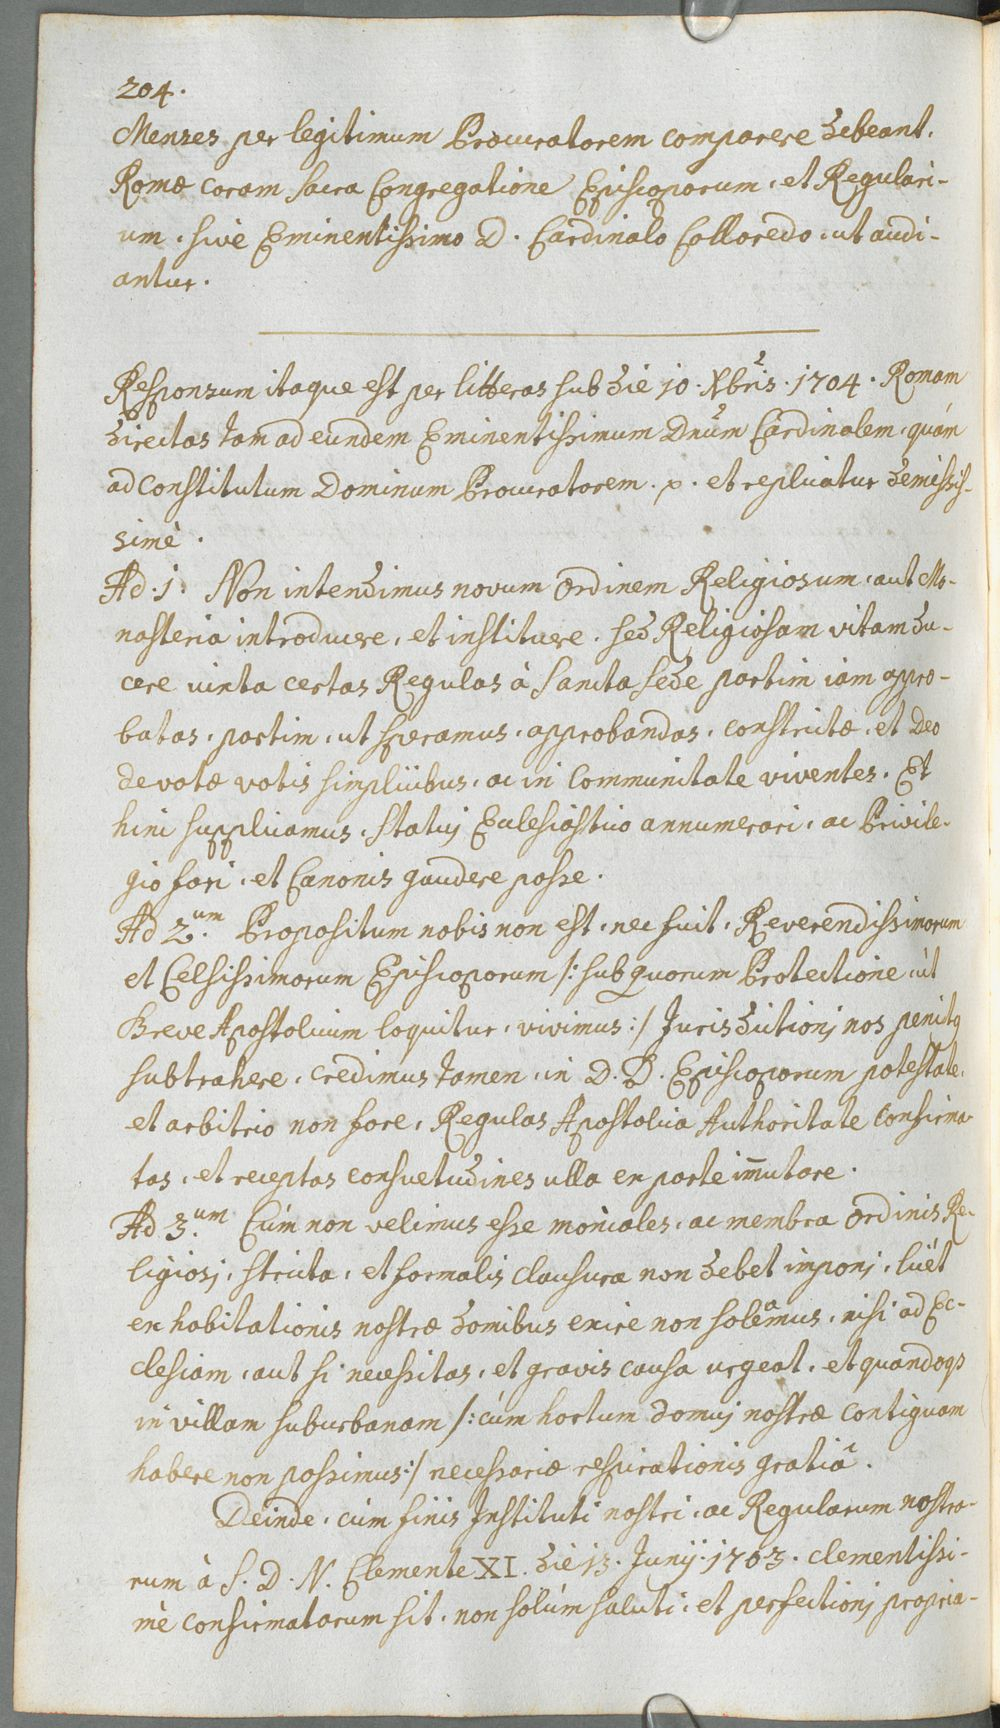 204.
Menses per legitimum Procuratorem comparere debeant.
Romæ coram Sacra Congregatione Episcoporum, et Regulari-
um, sive Eminentissimo D. Cardinale Colloredo, ut audi-
antur.
Responsum itaque est per litteras sub die 10. Xbris. 1704. Romam
directas tam ad eundem Eminentissimum Dnūm Cardinalem, quám
ad constitutum Dominum Procuratorem. p. et replicatur demissis-
simè.
Ad. 1. Non intendimus novum Ordinem Religiosum, aut Mo-
nasteria introducere, et instituere, sed Religiosam vitam du-
cere iuxta certas Regulas à Sancta Sede partim iam appro-
batas, partim, ut speramus, approbandas, constrictæ, et Deo
devotæ votis simplicibus, ac in Communitate viventes. Et
hinc supplicamus, Statuj Ecclesiastico annumerari, ac Privile-
gio fori, et Canonis gaudere posse.
Ad 2.um Propositum nobis non est, nec fuit, Reverendissimorum
et Celsissimorum Episcoporum /: sub quorum Protectione, ut
Breve Apostolicum loquitur, vivimus :/ Jurisdictionj nos penitq
subtrahere, credimus tamen, in D. D. Episcoporum potestate,
et arbitrio non fore, Regulas Apostolica Authoritate confirma
tas, et receptas consuetudines ulla ex parte im̄utare.
Ad 3.um Cúm non velimus esse moniales, ac membra Ordinis Re-
ligiosj, stricta, et formalis clausura non debet imponj, licèt
ex habitationis nostræ domibus exire non soleamus, nisi ad Ec-
clesiam, aut si necessitas, et gravis causa urgeat, et quandoqs
in villam suburbanam /: cúm hortum domuj nostræ contiguum
habere non possimus :/ necessariæ respirationis gratiâ.
Deinde, cúm finis Instituti nostri, ac Regularum nostra-
rum à S. D. N. Clemente XI. die 13. Junij. 1703. clementissi-
mè confirmatarum sit, non solúm saluti, et perfectionj propria-